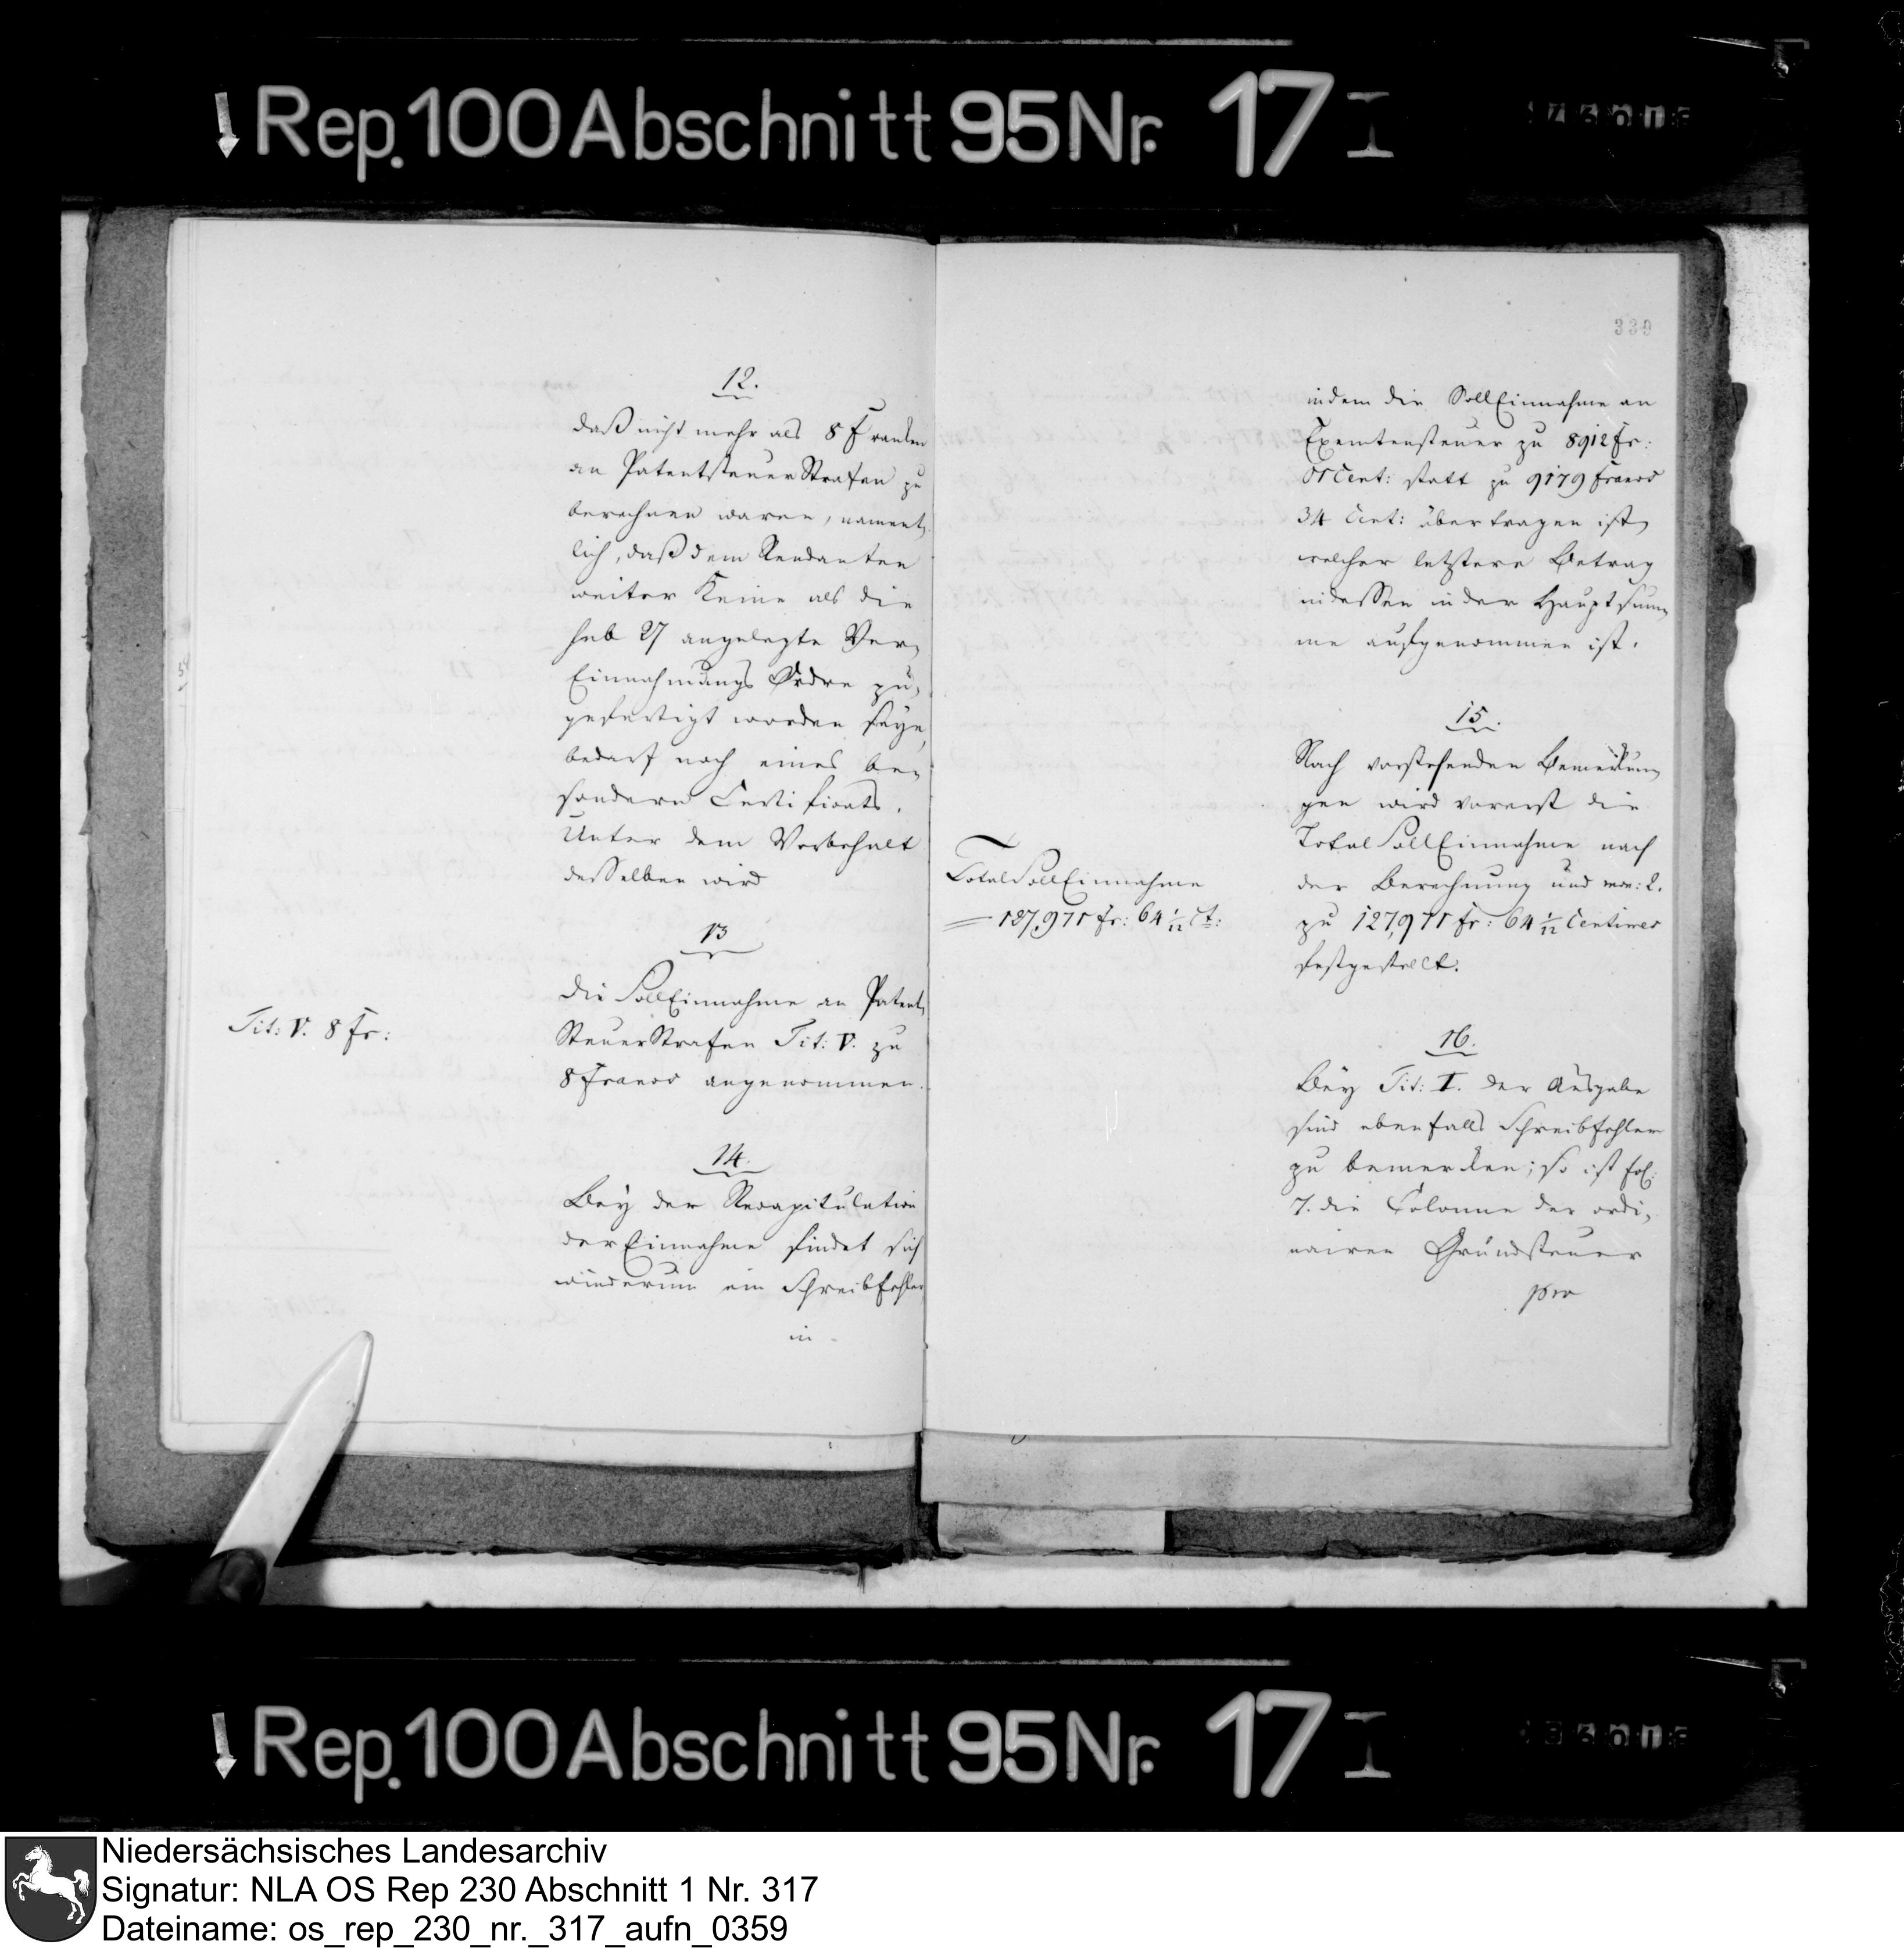 Rep. 100 Abschnitt 95 Nr. 17 I
12.
daß nicht mehr als 8 Franken
an Patentsteuer Strafen zu
berechnen waren, nament-
lich, daß dem Rendanten
weiter Keine als die
sub 27 angelegte Ver-
Einnahmungs Ordre zu-
gefertigt worden seye,
bedarf noch eines be-
sondern Certificats.
Unter dem Vorbehalt
desselben wird
13
Tit: V. 8 Fr:
die Soll Einnahme an Patent-
Steuer Strafen Tit: V. zu
8 Francs angenommen.
14.
Bey der Recapitulation
der Einnahme findet sich
wiederum ein Schreibfehler
in
330
indem die Soll Einnahme an
Exemtensteuer zu 8912 Fr:
01 Cent: statt zu 9179 Francs
34 Cent: übertragen ist,
welcher letztere Betrag
indessen in der Hauptsum-
me aufgenommen ist.
15.
Nach vorstehenden Bemerkun-
gen wird vorerst die
Total Soll Einnahme nach
der Berechnung und mon: 2.
zu 127,971 fr: 64 1/12 Centimes
festgestellt.
Total Soll Einnahme
= 127,971 fr: 64 1/12 Ct:
16.
Bey Tit: I. der Ausgabe
sind ebenfalls Schreibfehler
zu bemerken; so ist fol:
7. die Colonne der ordi-
nairen Grundsteuer
pro
Rep. 100 Abschnitt 95 Nr. 17 I
Niedersächsisches Landesarchiv
Signatur: NLA OS Rep 230 Abschnitt 1 Nr. 317
Dateiname: os_rep_230_nr._317_aufn_0359